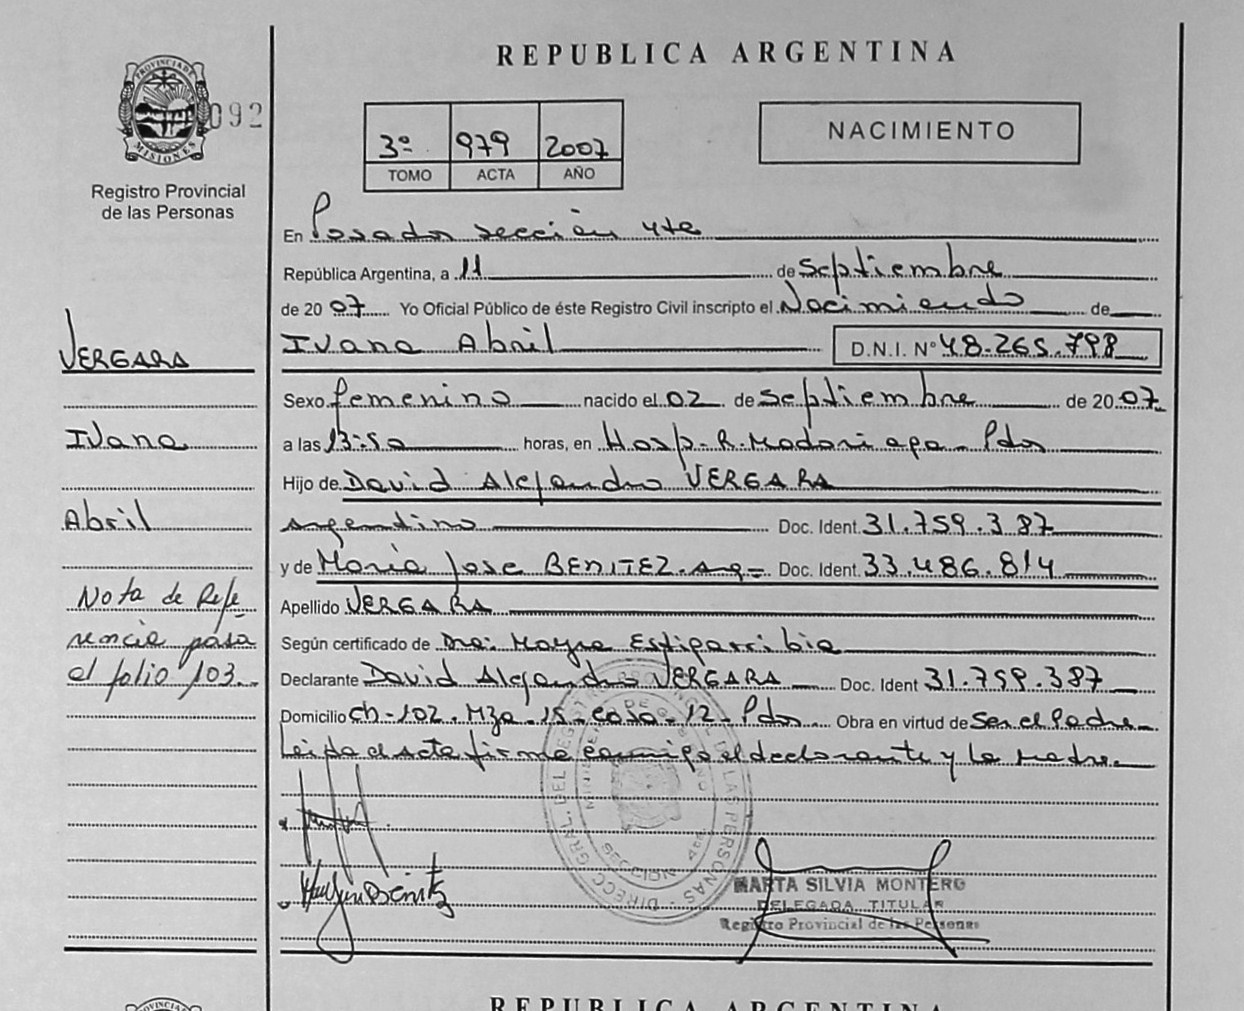 REPUBLICA ARGENTINA
PROVINCIA DE MISIONES
092
Registro Provincial
de las Personas
3º 979 2007
TOMO ACTA AÑO
NACIMIENTO
En Posadas sección 4ta
República Argentina, a 11 de septiembre
de 2007 Yo Oficial Público de éste Registro Civil inscripto el Nacimiento de
Ivana Abril D.N.I. Nº 48.265.798
Sexo femenino nacido el 02 de septiembre de 2007
a las 13:50 horas, en Hosp. R. Madariaga - Pdas
Hijo de David Alejandro VERGARA
argentino Doc. Ident. 31.759.387
y de María Jose BENITEZ. Arg- Doc. Ident. 33.486.814
Apellido VERGARA
Según certificado de Dra: Mayra Estigarribia
Declarante David Alejandro VERGARA Doc. Ident 31.759.387
Domicilio Ch-102. Mza-15-casa-12-Pdas Obra en virtud de Ser el Padre-
Leida el acta firma conmigo el declarante y la Madre.
VERGARA
Ivana
Abril
Nota de Refe
rencia pasa
el folio 103.
DIRECC. GRAL. DEL REGISTRO PROVINCIAL DE LAS PERSONAS
MARTA SILVIA MONTERO
DELEGADA TITULAR
Registro Provincial de las Personas
PROVINCIA
REPUBLICA ARGENTINA